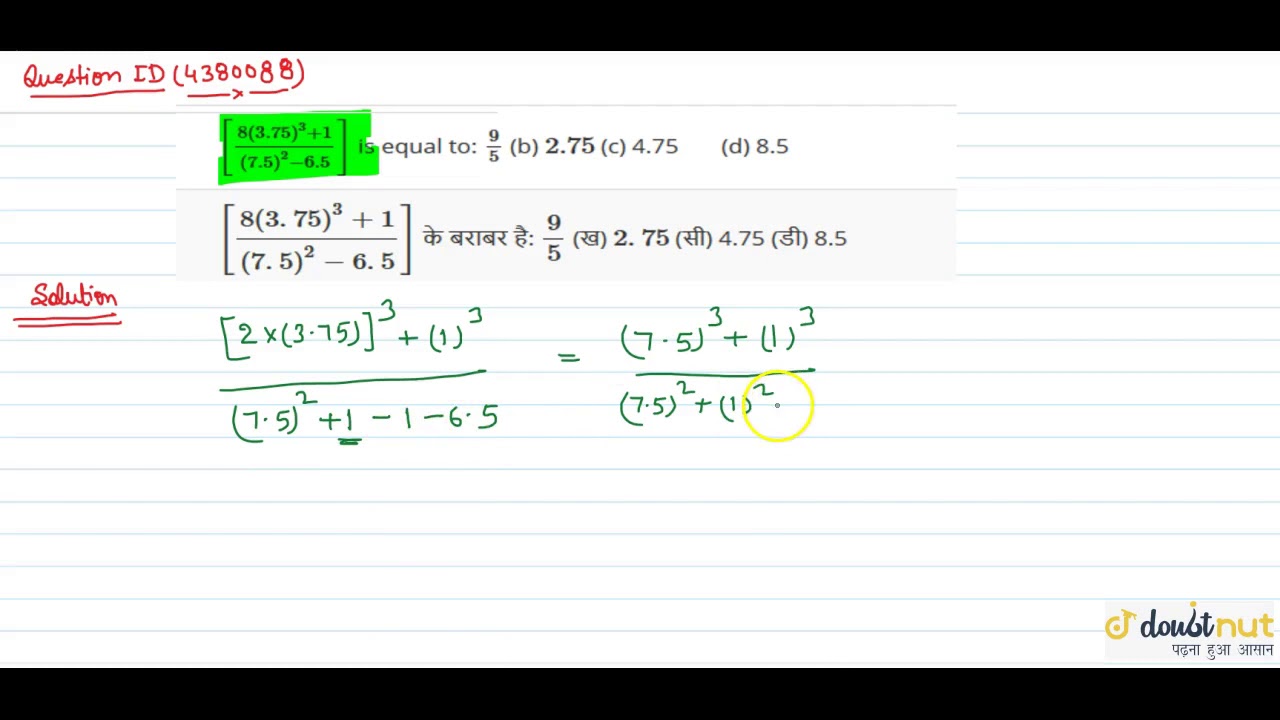 Question ID (4380088)
[8(3.75)³+1 / (7.5)²−6.5] is equal to: 9/5 (b) 2.75 (c) 4.75 (d) 8.5
[8(3.75)³ + 1 / (7.5)² − 6.5] के बराबर है: 9/5 (ख) 2.75 (सी) 4.75 (डी) 8.5
Solution
[2×(3.75)]³ + (1)³ / (7.5)² + 1 − 1 − 6.5 = (7.5)³ + (1)³ / (7.5)² + (1)²
doubtnut
पढ़ना हुआ आसान